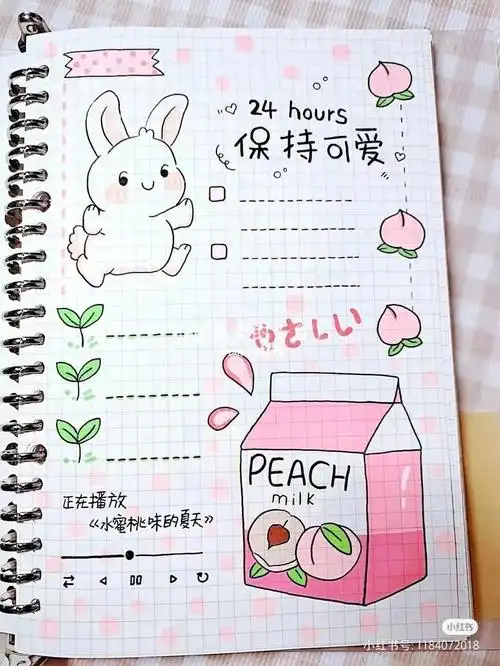 24 hours
保持可爱
やさしい
PEACH
milk
正在播放
《水蜜桃味的夏天》
小红书
小红书号: 1184072018